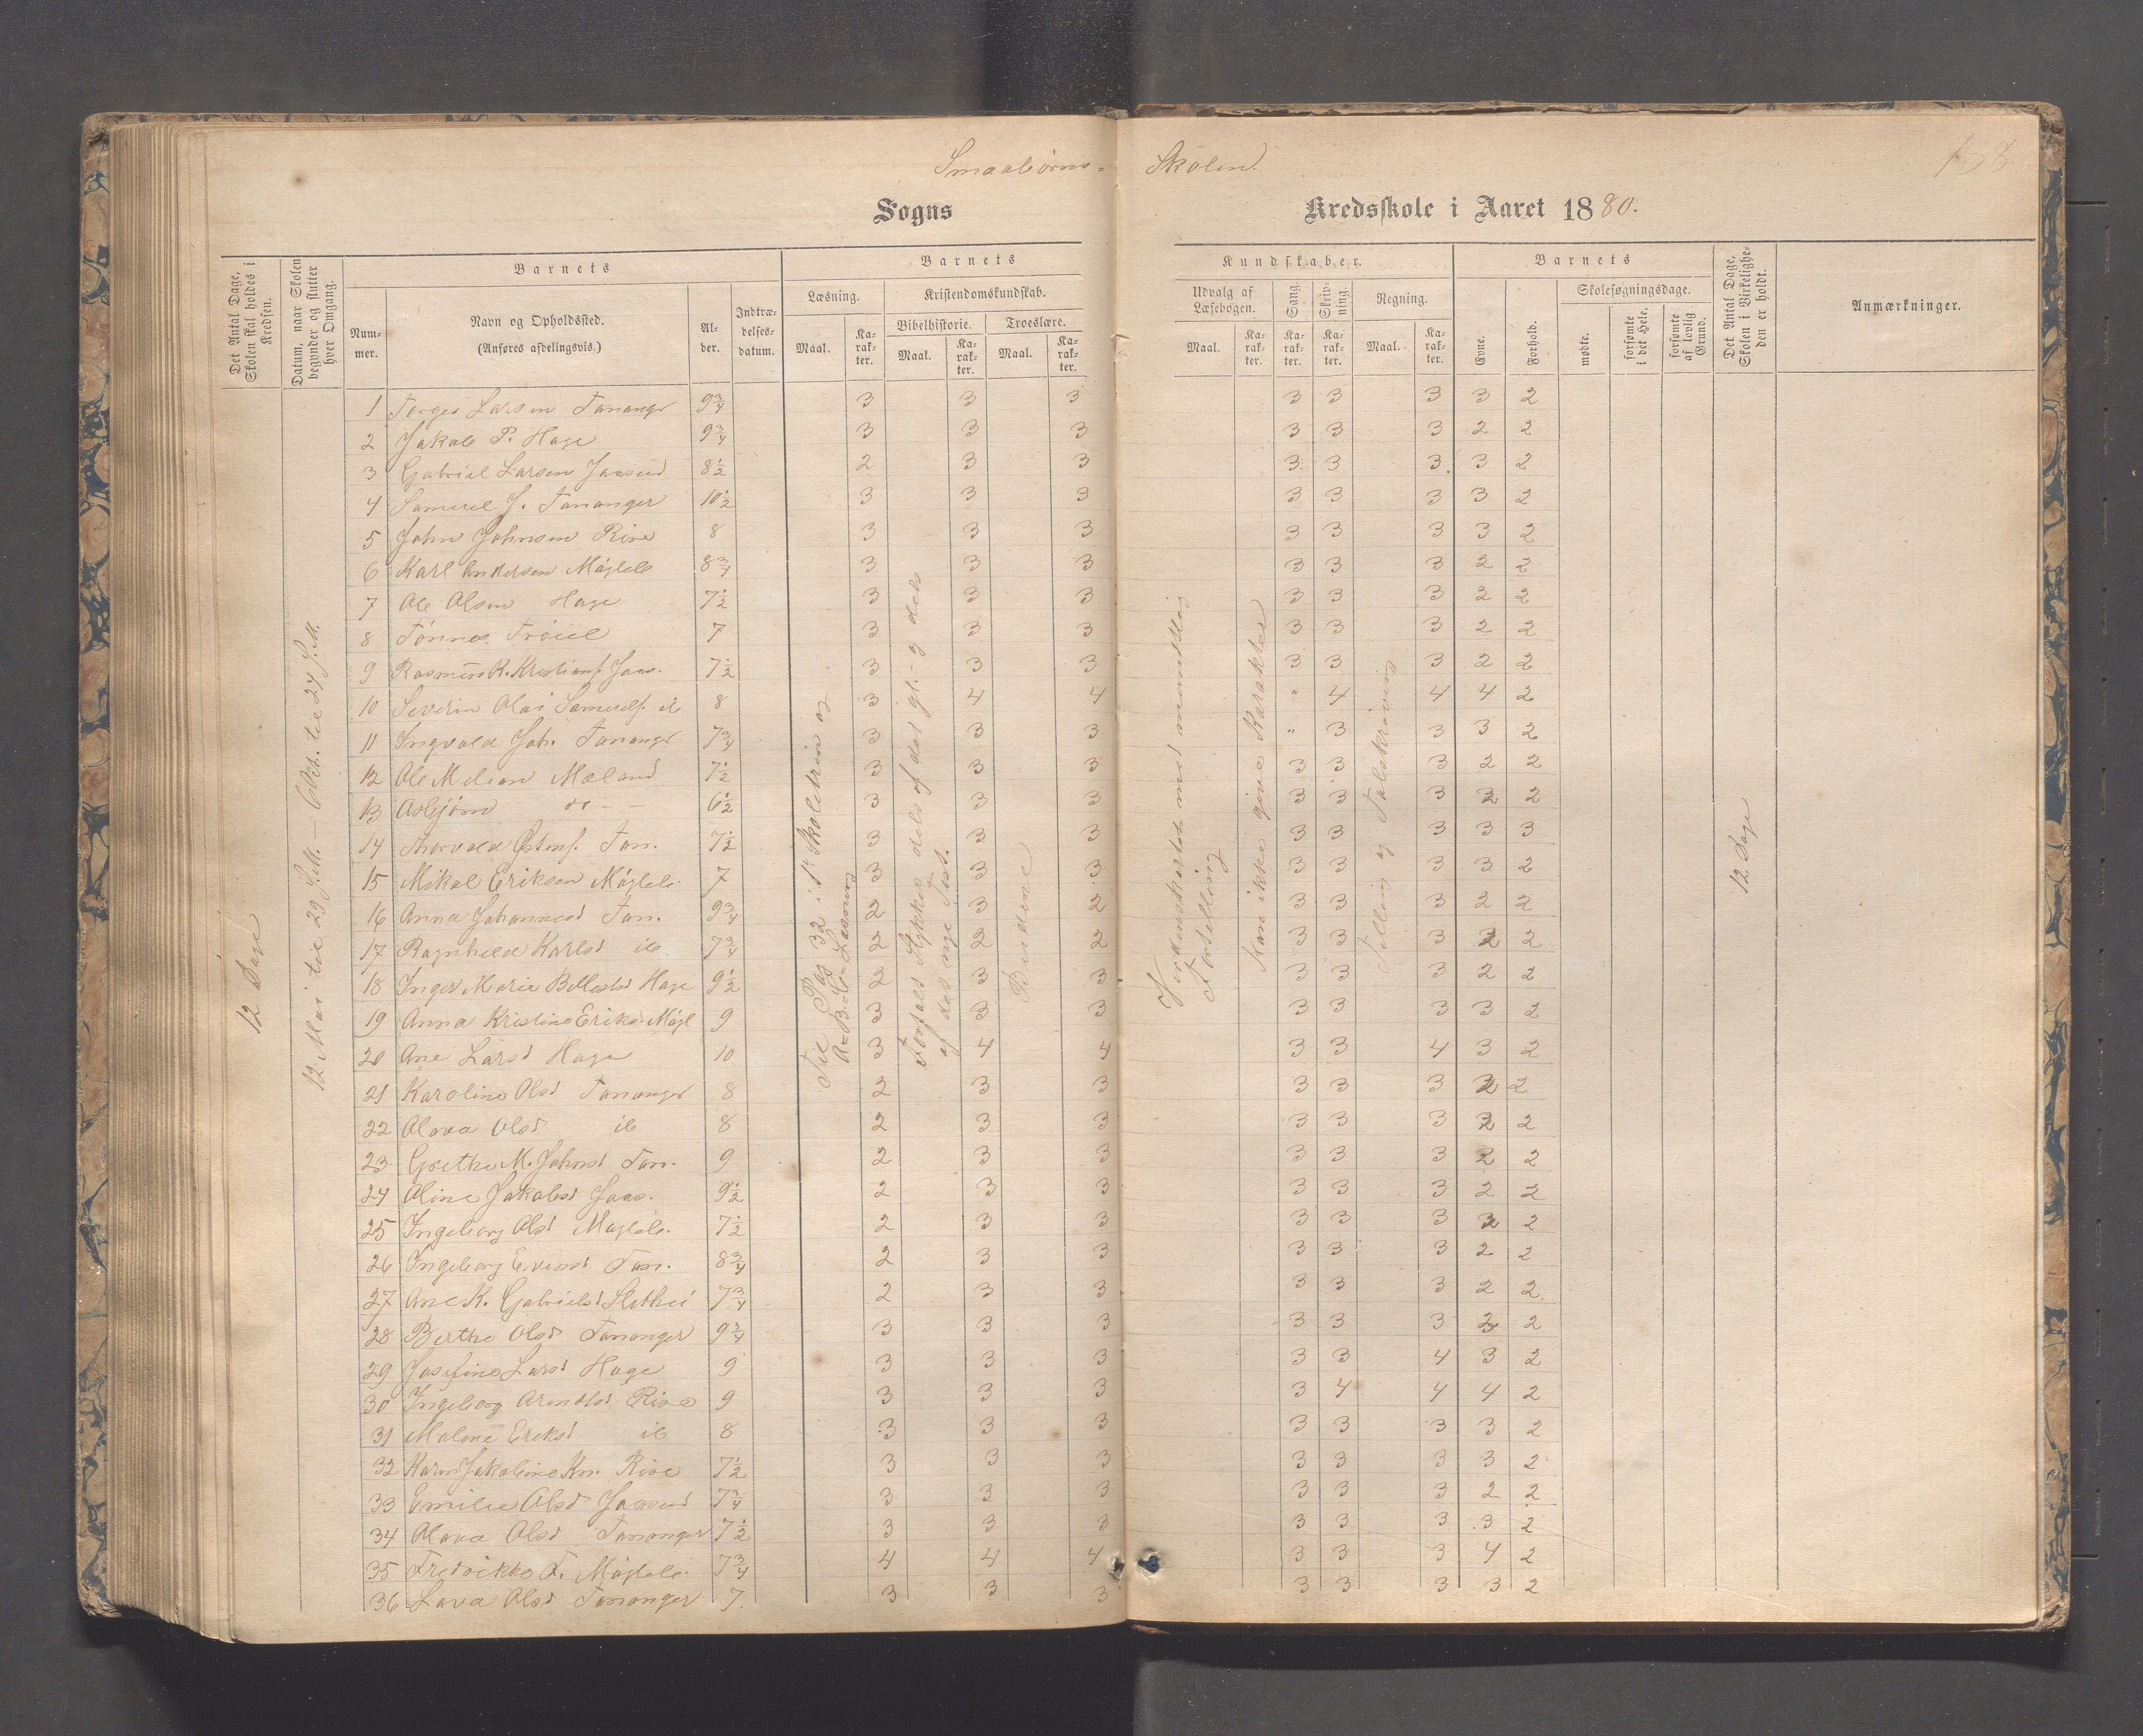 Smaabørns- Skolen.
Sogns Kredsskole i Aaret 1880.
Det Antal Dage, Skolen skal holdes i Kredsen.
Datum, naar Skolen begynder og slutter hver Omgang.
Barnets
Nummer.
Navn og Opholdssted.
(Anføres afdelingsvis.)
Alder.
Indtrædelsesdatum.
Barnets Kundskaber.
Læsning.
Maal.
Karakter.
Kristendomskundskab.
Bibelhistorie.
Maal.
Karakter.
Troeslære.
Maal.
Karakter.
Udvalg af Læsebogen.
Maal.
Karakter.
Sang.
Karakter.
Skrivning.
Karakter.
Regning.
Maal.
Karakter.
Barnets
Evne.
Forhold.
Skolesøgningsdage.
mødte.
forsømte i det Hele.
forsømte af lovlig Grund.
Det Antal Dage, Skolen i Virkeligheden er holdt.
Anmærkninger.
12 Dage
Kan ikke give Karakter
12 Dage
1 Torges Larsen Tananger 9 3/4 3 3 3 3 3 3 3 2
2 Jakob P. Hage 9 3/4 3 3 3 3 3 3 2 2
3 Gabriel Larsen Jaasund 8 1/2 2 3 3 3 3 3 3 2
4 Samuel J. Tananger 10 1/2 3 3 3 3 3 3 3 2
5 John Johnsen Rise 8 3 3 3 3 3 3 3 2
6 Karl Andersen Møgleb 8 3/4 3 3 3 3 3 3 2 2
7 Ole Olsen Hage 7 1/2 3 3 3 3 3 3 2 2
8 Tønnes 7 3 3 3 3 3 3 2 2
9 Rasmus K. Kristians. Jaas. 7 1/2 3 3 3 3 3 3 2 2
10 Severin Olai Samuels. ib 8 3 4 4 " 4 4 4 2
11 Ingvald Joh. Tananger 7 3/4 3 3 3 " 3 3 3 2
12 Ole Melian Mæland 7 1/2 3 3 3 3 3 3 2 2
13 Asbjørn 6 1/2 3 3 3 3 3 3 2 2
14 Thorvald Tan. 7 1/2 3 3 3 3 3 3 3 3
15 Mikal Eriksen Møgleb. 7 3 3 3 3 3 3 3 2
16 Anna Johannesd Tan. 9 3/4 2 3 2 3 3 3 2 2
17 Ragnhild Karlsd ib. 7 3/4 2 2 2 3 3 3 2 2
18 Inger Marie Hage 9 1/2 2 3 3 3 3 3 2 2
19 Anna Kristine Eriks. Møgl 9 3 3 3 3 3 3 3 2
20 Ane Larsd Hage 10 3 4 4 3 3 4 3 2
21 Karoline Olsd Tananger 8 2 3 3 3 3 3 2 2
22 Olava Olsd ib 8 2 3 3 3 3 3 2 2
23 Grethe M. Johnsd Tan. 9 2 3 3 3 3 3 2 2
24 Oline Jakobsd Jaas. 9 1/2 2 3 3 3 3 3 2 2
25 Ingeborg Olsd Møgleb. 7 1/2 2 3 3 3 3 3 2 2
26 Ingeborg Evensd Tan. 8 3/4 2 3 3 3 3 3 2 2
27 Ane K. Gabrielsd 7 3/4 2 3 3 3 3 3 2 2
28 Berthe Olsd Tananger 9 3/4 3 3 3 3 3 3 2 2
29 Josefine Larsd Hage 9 3 3 3 3 3 4 3 2
30 Ingeborg Arentsd Rise 9 3 3 3 3 4 4 4 2
31 Malene Eriksd ib 8 3 3 3 3 3 3 3 2
32 Karen Jakobine Kn. Rise 7 1/2 3 3 3 3 3 3 3 2
33 Emilie Olsd Jaasund 7 3/4 3 3 3 3 3 3 2 2
34 Olava Olsd Tananger 7 1/2 3 3 3 3 3 3 3 2
35 Fredrikke T. Møgleb. 7 3/4 4 4 4 3 3 3 4 2
36 Lava Olsd Tananger 7. 3 3 3 3 3 3 3 2